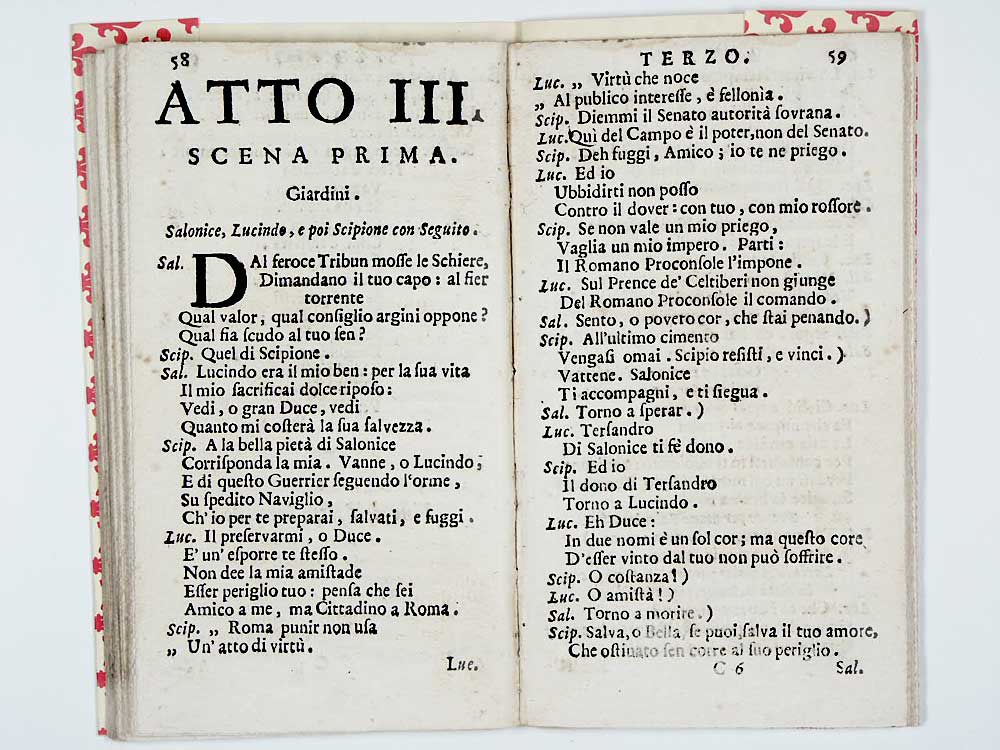 58
ATTO III.
SCENA PRIMA.
Giardini.
Salonice, Lucindo, e poi Scipione con Seguito.
Sal. DAl feroce Tribun mosse le Schiere,
Dimandano il tuo capo: al fier
torrente
Qual valor, qual consiglio argini oppone?
Qual fia scudo al tuo sen?
Scip. Quel di Scipione.
Sal. Lucindo era il mio ben: per la sua vita
Il mio sacrificai dolce riposo:
Vedi, o gran Duce, vedi
Quanto mi costerà la sua salvezza.
Scip. A la bella pietà di Salonice
Corrisponda la mia. Vanne, o Lucindo;
E di questo Guerrier seguendo l'orme,
Su spedito Naviglio,
Ch'io per te preparai, salvati, e fuggi.
Luc. Il preservarmi, o Duce.
E' un' esporre te stesso.
Non dee la mia amistade
Esser periglio tuo: pensa che sei
Amico a me, ma Cittadino a Roma.
Scip. „ Roma punir non usa
„ Un' atto di virtù.
Luc.
TERZO. 59
Luc. „ Virtù che noce
„ Al publico interesse, è fellonìa.
Scip. Diemmi il Senato autorità sovrana.
Luc. Quì del Campo è il poter, non del Senato.
Scip. Deh fuggi, Amico; io te ne priego.
Luc. Ed io
Ubbidirti non posso
Contro il dover: con tuo, con mio rossore.
Scip. Se non vale un mio priego,
Vaglia un mio impero. Parti:
Il Romano Proconsole l'impone.
Luc. Sul Prence de' Celtiberi non giunge
Del Romano Proconsole il comando.
Sal. Sento, o povero cor, che stai penando.)
Scip. All'ultimo cimento
Vengasi omai. Scipio resisti, e vinci.)
Vattene. Salonice
Ti accompagni, e ti siegua.
Sal. Torno a sperar.)
Luc. Tersandro
Di Salonice ti fè dono.
Scip. Ed io
Il dono di Tersandro
Torno a Lucindo.
Luc. Eh Duce:
In due nomi è un sol cor; ma questo core
D'esser vinto dal tuo non può soffrire.
Scip. O costanza!)
Luc. O amistà!)
Sal. Torno a morire.)
Scip. Salva, o Bella, se puoi, salva il tuo amore,
Che ostinato sen corre al suo periglio.
C 6 Sal.